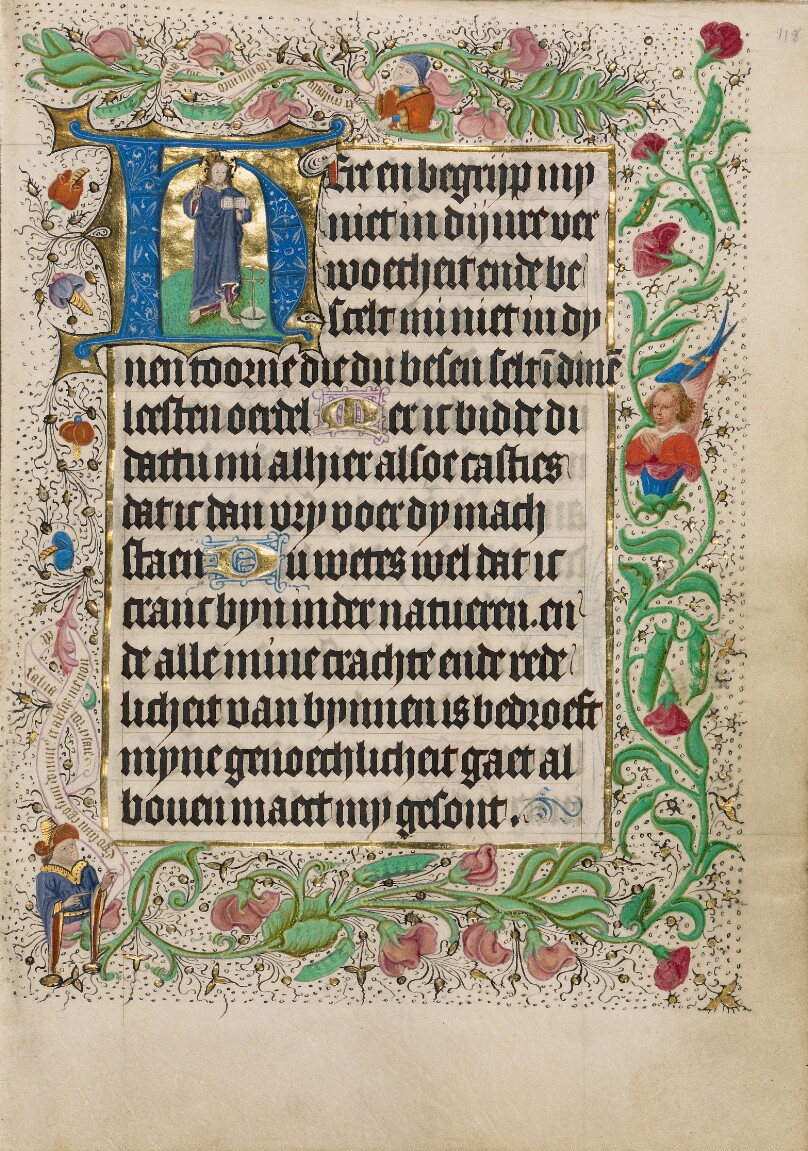 Heer en begrijp my
niet in dijnre ver
woetheit ende be
scelt mi niet in dy
nen toorne die du besen selt ī dinē
leesten oerdel Mer ic bidde di
dattu mi alhier alsoe casties
dat ic dan vry voer dy mach
staen Du wetes wel dat ic
cranc byn in der natueren. en
de alle mine crachte ende rede
licheit van bynnen is bedroeft
myne genoechlicheit gaet al
bouen maect my gesont.
118